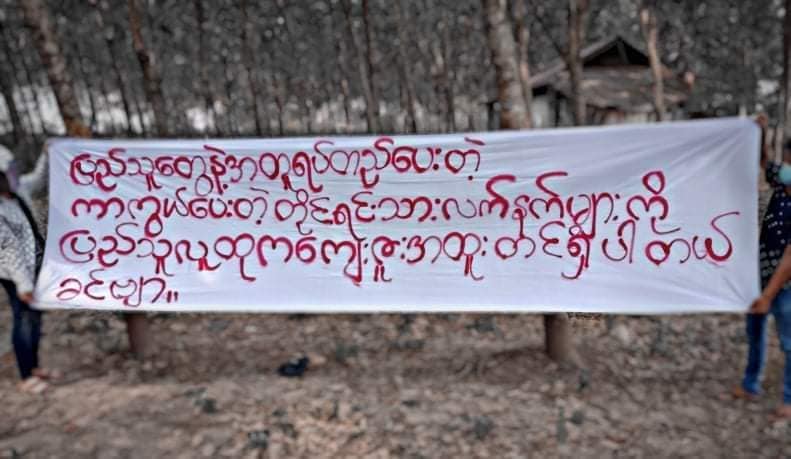 ပြည်သူတွေနဲ့အတူရပ်တည်ပေးတဲ့
ကာကွယ်ပေးတဲ့ တိုင်းရင်းသားလက်နက်များ ကို
ပြည်သူလူထုကကျေးဇူးအထူးတင်ရှိပါတယ်
ခင်ဗျာ။